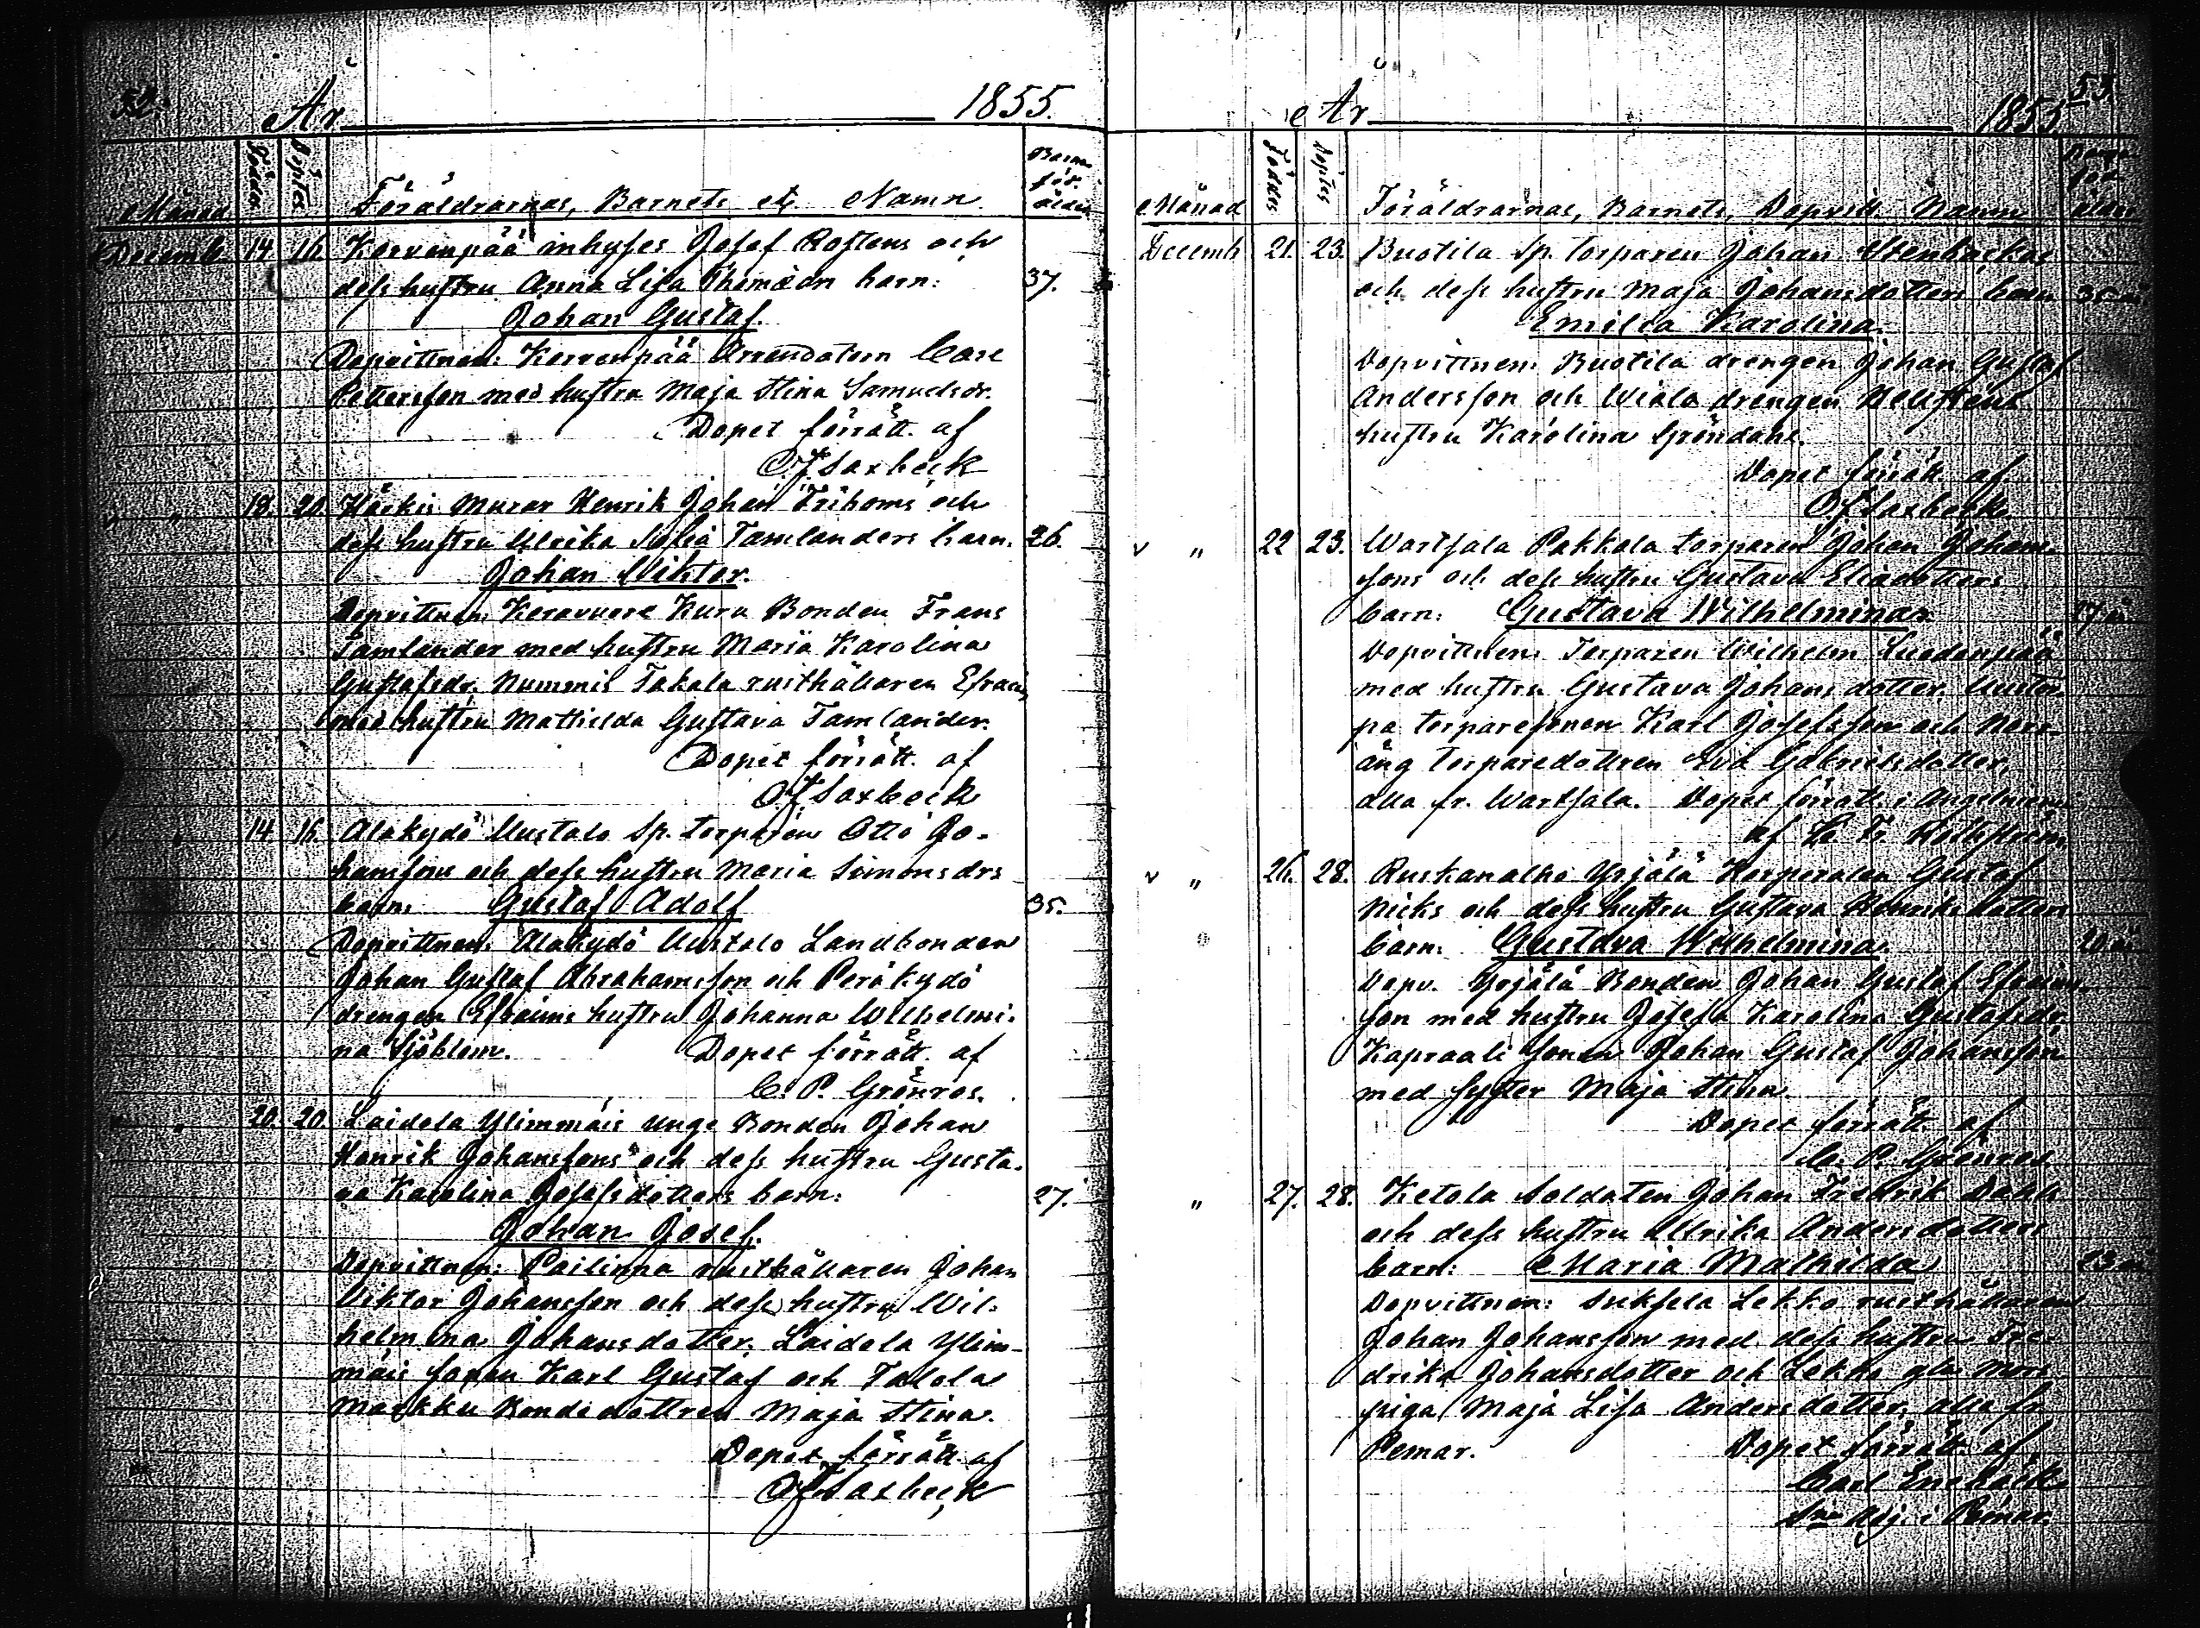 52.
År 1855.
Månad Födder Döptes Föräldrarnas, Barnets etc. Namn.
Decemb. 14 16 Korvenpää inhyses Josef Rostens och
dess hustru Anna Lisa barn: 37.
Johan Gustaf.
Dopvittnen: Korvenpää Arrendatorn Carl
Pettersson med hustru Maja Stina Samuelsdr.
Dopet förrätt. af
Saxbeck
" 18. 20. Härki Murar Henrik Johan och
dess hustru Ulrika Sofia Tamlanders barn. 26.
Johan Wiktor.
Dopvittnen: Keravuore Kuru Bonden Frans
Tamlander med hustru Maria Karolina
Gustafsdr. Nummis Takala rusthållaren Efraim
med hustru Mattilda Gustava Tamlander.
Dopet förrätt. af
Saxbeck
14 16. Alakydö Uustalo Sp. torparen Otto Jo-
hanssons och dess hustru Maria Simonsdrs
barn: Gustaf Adolf 35.
Dopvittnen: Alakydö Uustalo Landbonden
Johan Gustaf Abrahamsson och Peräkydö
drengen Efraims hustru Johanna Wilhelmi-
na Sjöblom. Dopet förrätt. af
C. P. Grönros.
20. 20. Laidola Ylimmäis unge Bonden Johan
Henrik Johanssons och dess hustru Gusta-
va Karolina Josefsdotters barn: 27.
Johan Josef.
Dopvittnen: Pailinna rusthållaren Johan
Viktor Johansson och dess hustru Wil-
helmina Johansdotter, Laidola Ylim-
mäis sonen Karl Gustaf och Talola
Markku Bondedottren Maja Stina.
Dopet förrätt. af
Saxbeck
53.
År 1855
Månad Föddes Döptes Föräldrarnas, Barnets, Dopvitt. Namn
Decemb 21. 23. Buotila Sp. torparen Johan Stenbackas
och dess hustru Maja Johansdotters barn 35
Emilia Karolina.
Dopvittnen: Buotila drengen Johan Gustaf
Andersson och Wiala drengen
hustru Karolina Gröndahl.
Dopet förrätt. af
Saxbeck
" 22 23. Wartsala Pakkala torparen Johan Johans-
sons och dess hustru Gustava Eliædotters
barn: Gustava Wilhelmina 27
Dopvittnen: Torparen Wilhelm
med hustru Gustava Johansdotter,
pä torparesonen Karl Josefsson och Norr-
äng torparedottren Eva Gabrielsdotter,
alla fr. Wartsala. Dopet förrätt. i Angelniemi
af
" 26. 28. Ruskanalho Yrjälä Korporalen Gustaf
Nicks och dess hustru Gustava Henriksdotters
barn: Gustava Wilhelmina.
Dopv. Yrjälä Bonden Johan Gustaf Efraims-
son med hustru Josefa Karolina Gustafsdr,
Kapraali sonen Johan Gustaf Johansson
med syster Maja Stina
Dopet förrätt. af
C. P. Grönros
" 27. 28. Ketola Soldaten Johan Fredrik Dahls
och dess hustru Ulrika Andersdotters
barn: Maria Mathilda 23
Dopvittnen: Suksela Lekko rusthållaren
Johan Johansson med dess hustru Fre-
drika Johansdotter och Lekko
piga Maja Lisa Andersdotter, alla fr.
Pemar. Dopet förrätt. af
Carl
Adj. i Pemar.